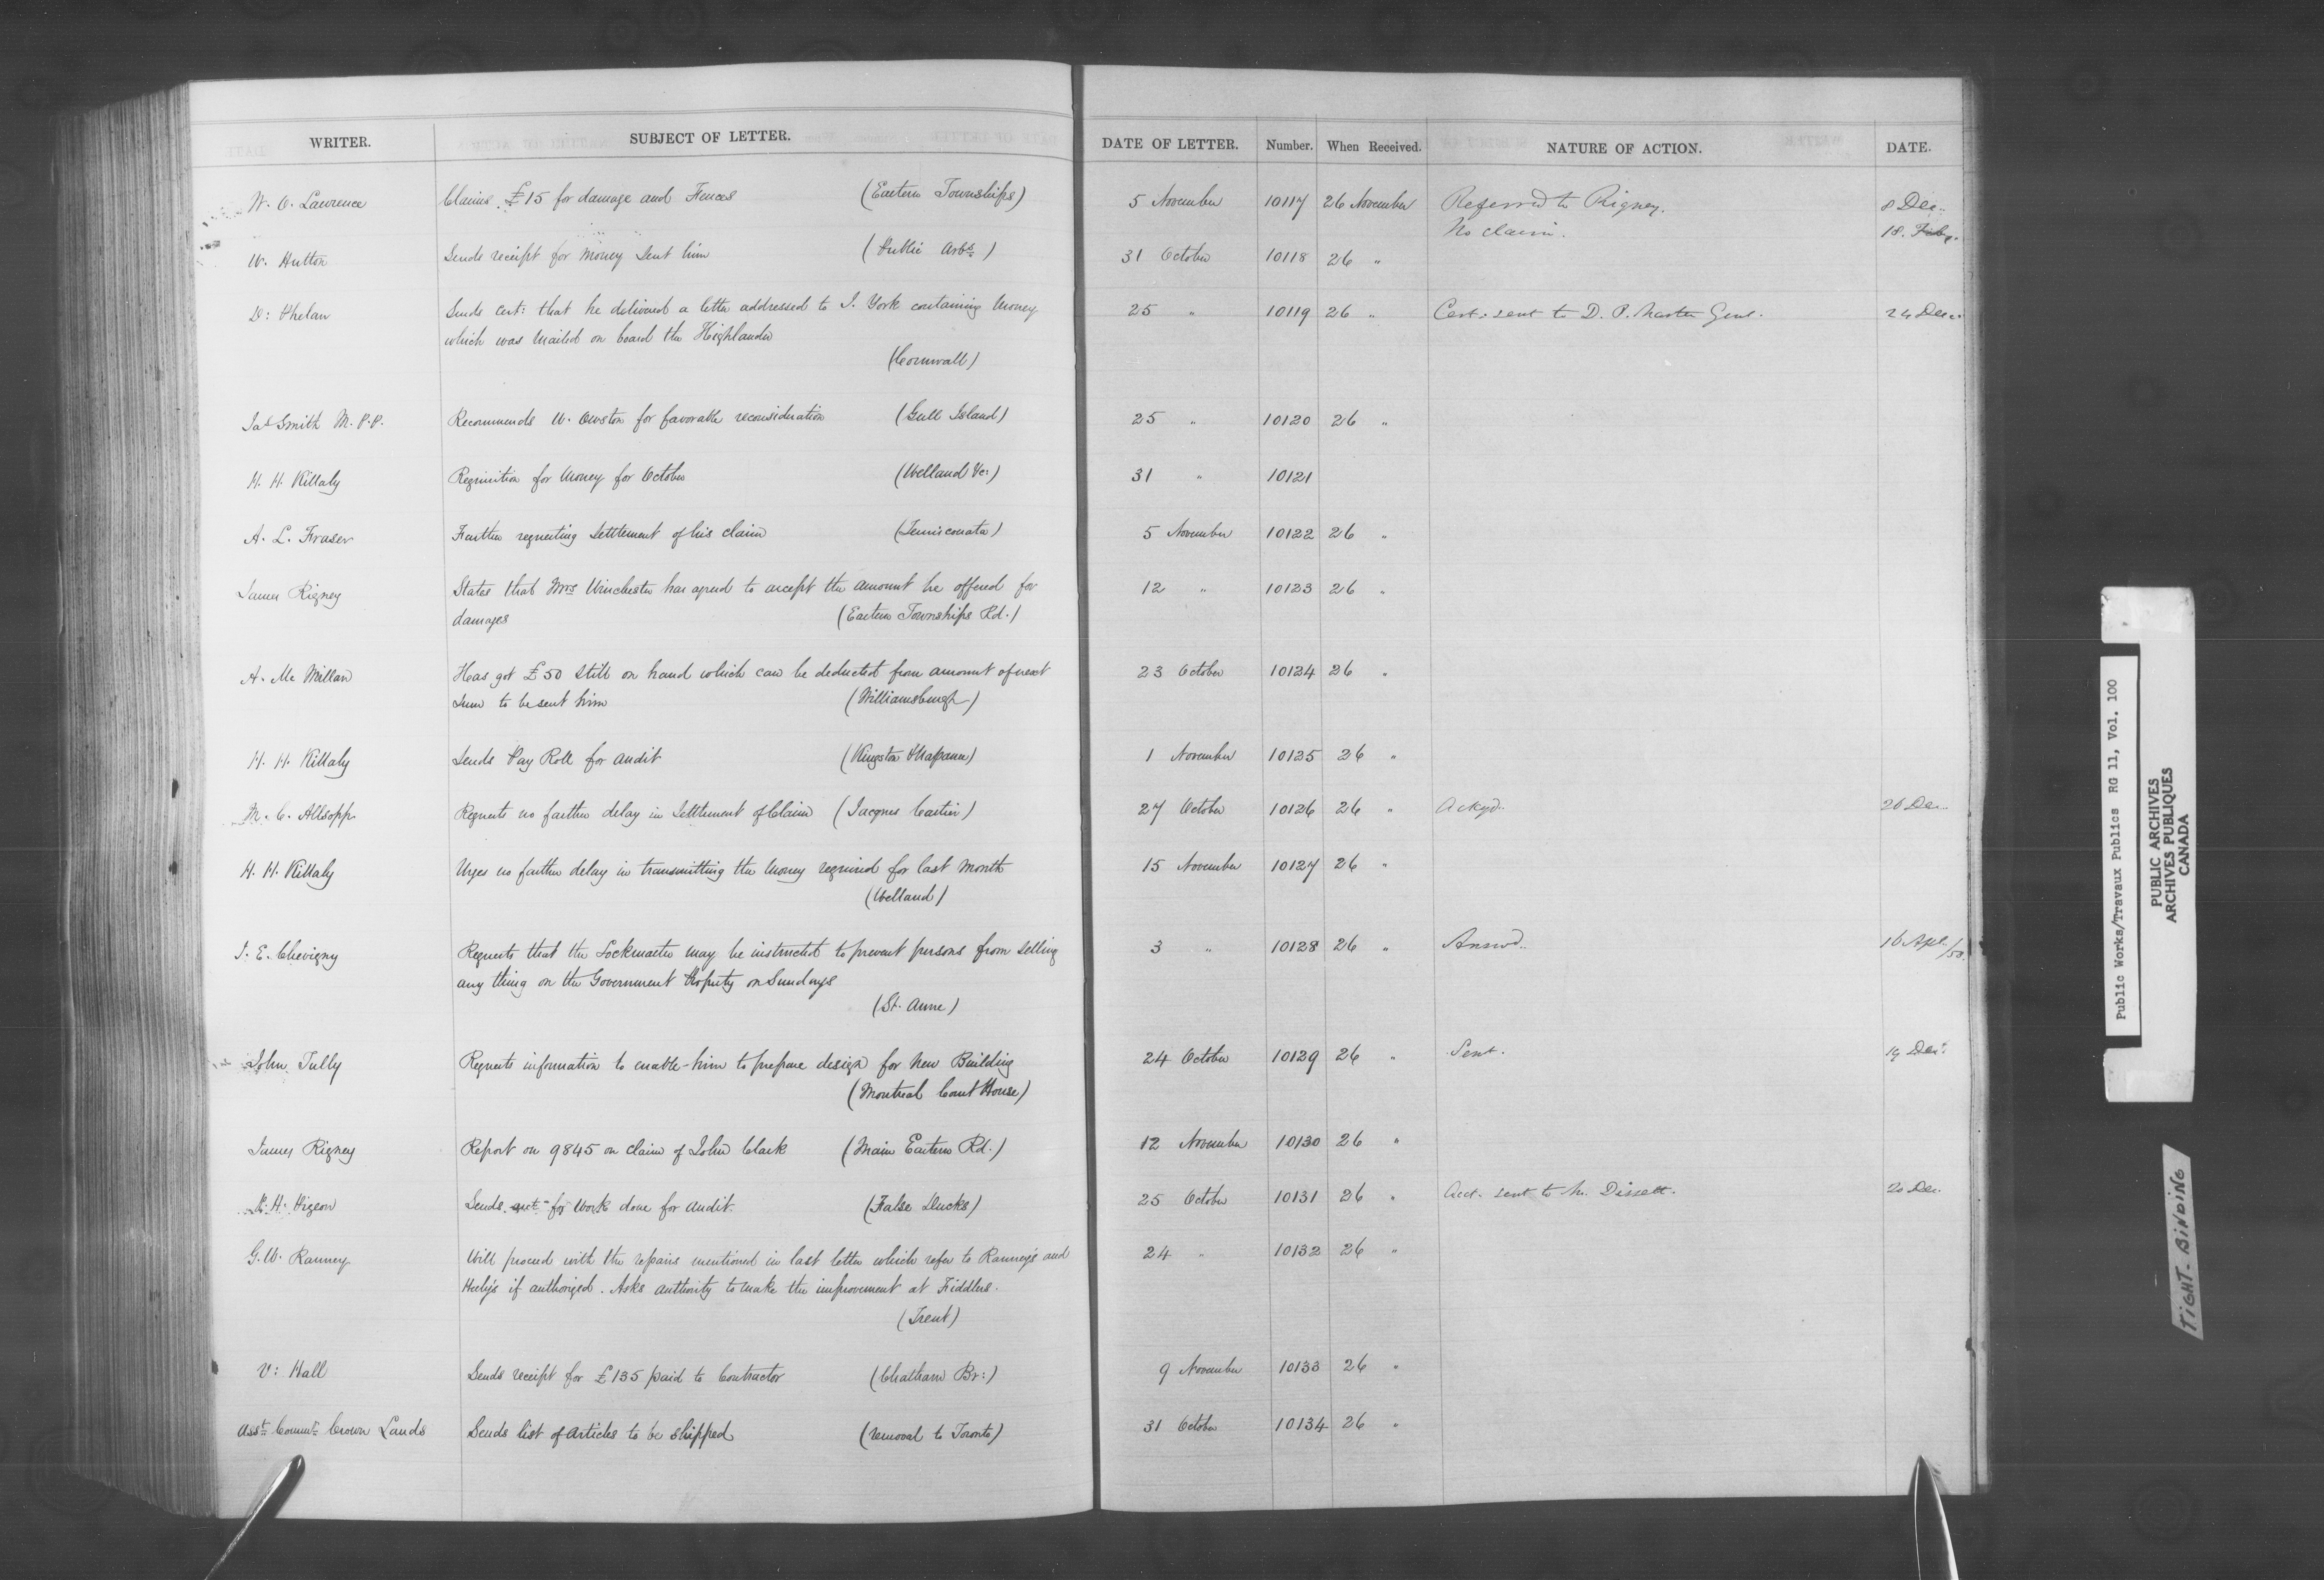 WRITER. SUBJECT OF LETTER. DATE OF LETTER. Number. When Received. NATURE OF ACTION. DATE.
W. O. Lawrence Claims £15 for damage and Fences (Eastern Townships) 5 November 10117 26 November Referred to Rigney. 8 Dec..
No claim. 18.
W. Hutton Sends receipt for Money Sent him (Public Arbs) 31 October 10118 26 "
D: Phelan Sends cert: that he delivered a letter addressed to J. York containing Money 25 " 10119 26 " Cert: sent to D. P. Master Genl. 24 Dec..
which was Mailed on board the Highlander
(Cornwall)
Jas Smith M.P.P. Recommends W. Owston for favorable reconsideration (Gull Island) 25 " 10120 26 "
H. H. Killaly Requisition for Money for October (Welland &c:) 31 " 10121
A. L. Fraser Further requesting Settlement of his claim (Temisconata) 5 November 10122 26 "
James Rigney States that Mrs Winchester has agreed to accept the amount he offered for 12 " 10123 26 "
damages (Eastern Townships Rd.)
A. Mc Millan Has got £50 still on hand which can be deducted from amount of next 23 October 10124 26 "
Sum to be sent him (Williamsburgh)
H. H. Killaly Sends Pay Roll for Audit (Kingston & Napanee) 1 November 10125 26 "
M. C. Allsopp Requests no farther delay in Settlement of Claim (Jacques Cartier) 27 October 10126 26 " Ackgd. 26 Dec..
H. H. Killaly Urges no farther delay in transmitting the Money required for last Month 15 November 10127 26 "
(Welland)
J. E. Chevigny Requests that the Lockmaster may be instructed to prevent persons from selling 3 " 10128 26 " Answd.. 16 Apl /50.
any thing on the Government Property on Sundays
(St. Anne)
John Tully Requests information to enable him to prepare design for New Building 24 October 10129 26 " Sent. 19 Dec:
(Montreal Court House)
James Rigney Report on 9845 on claim of John Clark (Main Eastern Rd.) 12 November 10130 26 "
H. Higeon Sends acct for Work done for Audit. (False Ducks) 25 October 10131 26 " Acct. sent to Mr. Dissett. 20 Dec.
G. W. Ranney Will proceed with the repairs mentioned in last letter which refer to Ranney's and 24 " 10132 26 "
Heely's if authorized. Asks authority to make the improvement at Fiddlers.
(Trent)
V: Hall Sends receipt for £135 paid to Contractor (Chatham Br:) 9 November 10133 26 "
Asst. Commr. Crown Lands Sends list of Articles to be shipped (removal to Toronto) 31 October 10134 26 "
Public Works/Travaux Publics RG 11, Vol. 100
PUBLIC ARCHIVES
ARCHIVES PUBLIQUES
CANADA
TIGHT-BINDING